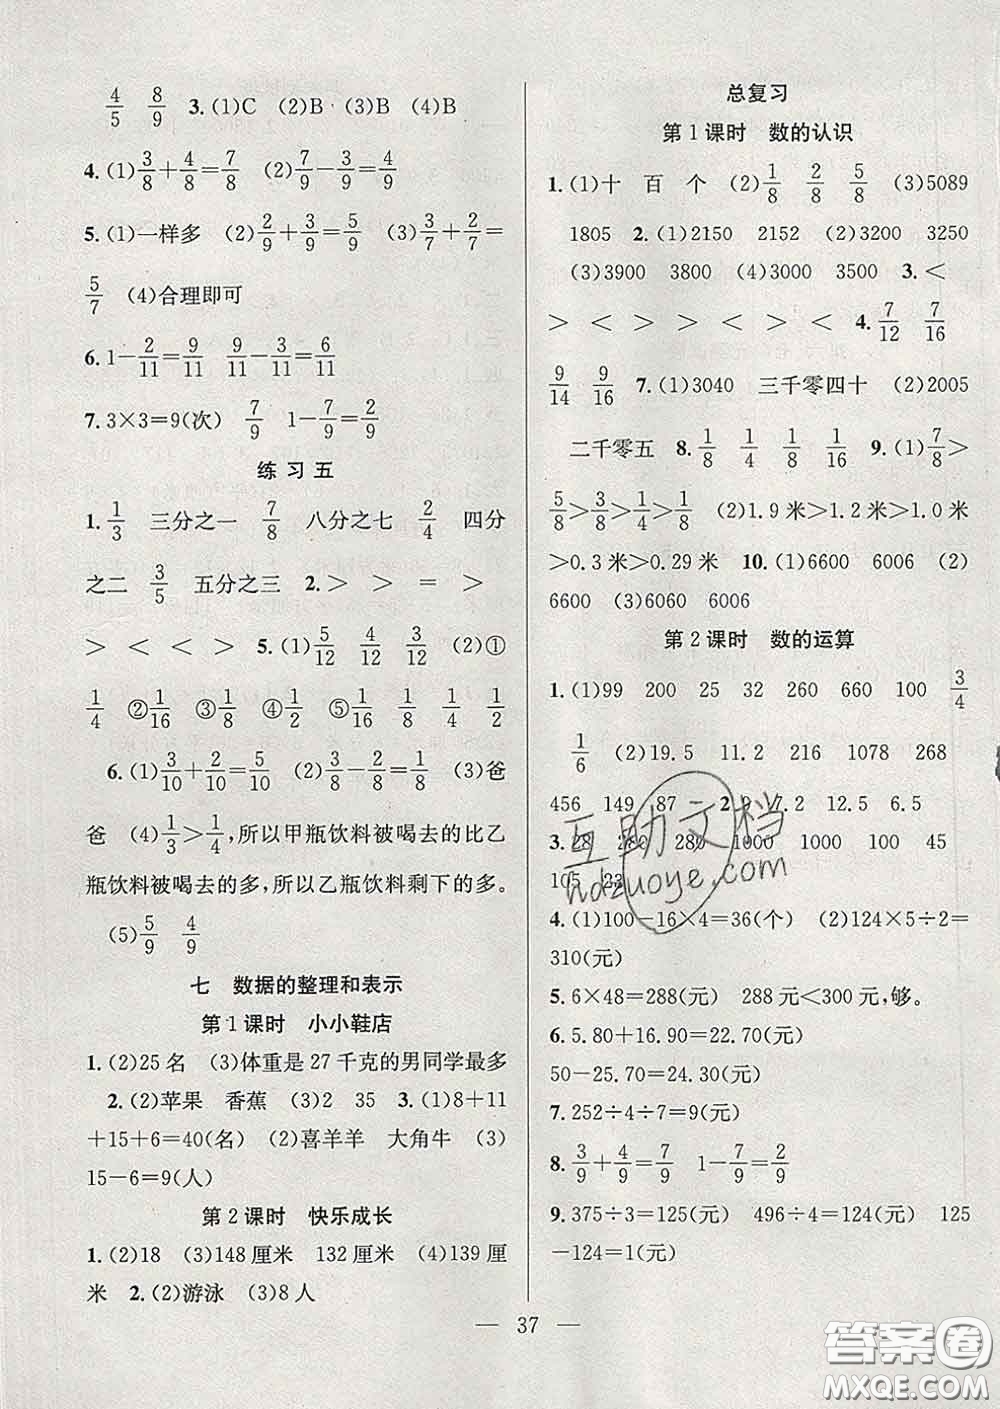 4/5 8/9 3.(1)C (2)B (3)B (4)B
4.(1)3/8+4/8=7/8 (2)7/9-3/9=4/9
5.(1)一样多 (2)2/9+3/9=5/9 (3)3/7+2/7=
5/7 (4)合理即可
6.1-2/11=9/11 9/11-3/11=6/11
7.3×3=9(次) 7/9 1-7/9=2/9
练习五
1.1/3 三分之一 7/8 八分之七 2/4 四分
之二 3/5 五分之三 2.> > = >
> < < > 5.(1)5/12 4/12 3/12 (2)①
1/4 ②1/16 ③1/8 ④1/2 ⑤1/16 1/8 1/4 1/2
6.(1)3/10+2/10=5/10 (2)3/8-2/8=1/8 (3)爸
爸 (4)1/3>1/4,所以甲瓶饮料被喝去的比乙
瓶饮料被喝去的多,所以乙瓶饮料剩下的多。
(5)5/9 4/9
七 数据的整理和表示
第1课时 小小鞋店
1.(2)25名 (3)体重是27千克的男同学最多
2.(2)苹果 香蕉 (3)2 35 3.(1)8+11
+15+6=40(名) (2)喜羊羊 大角牛 (3)
15-6=9(人)
第2课时 快乐成长
1.(2)18 (3)148厘米 132厘米 (4)139厘
米 2.(2)游泳 (3)8人
总复习
第1课时 数的认识
1.(1)十 百 个 (2)1/8 2/8 5/8 (3)5089
1805 2.(1)2150 2152 (2)3200 3250
(3)3900 3800 (4)3000 3500 3.<
> < > > < > < 4.7/12 7/16
9/14 9/16 7.(1)3040 三千零四十 (2)2005
二千零五 8.1/8 1/4 1/4 1/2 9.(1)7/8>
5/8>3/8>1/4>1/8 (2)1.9米>1.2米>1.0米
>0.3米>0.29米 10.(1)6600 6006 (2)
6600 (3)6060 6006
第2课时 数的运算
1.(1)99 200 25 32 260 660 100 3/4
1/6 (2)19.5 11.2 216 1078 268
456 149 87 2.9 7.2 12.5 6.5
3.28 280 280 1000 1000 100 45
105 23
4.(1)100-16×4=36(个) (2)124×5÷2=
310(元)
5.6×48=288(元) 288元<300元,够。
6.5.80+16.90=22.70(元)
50-25.70=24.30(元)
7.252÷4÷7=9(元)
8.3/9+4/9=7/9 1-7/9=2/9
9.375÷3=125(元) 496÷4=124(元) 125
-124=1(元)
37
互助文档
hdzuoye.com
答案圈
MXQE.COM